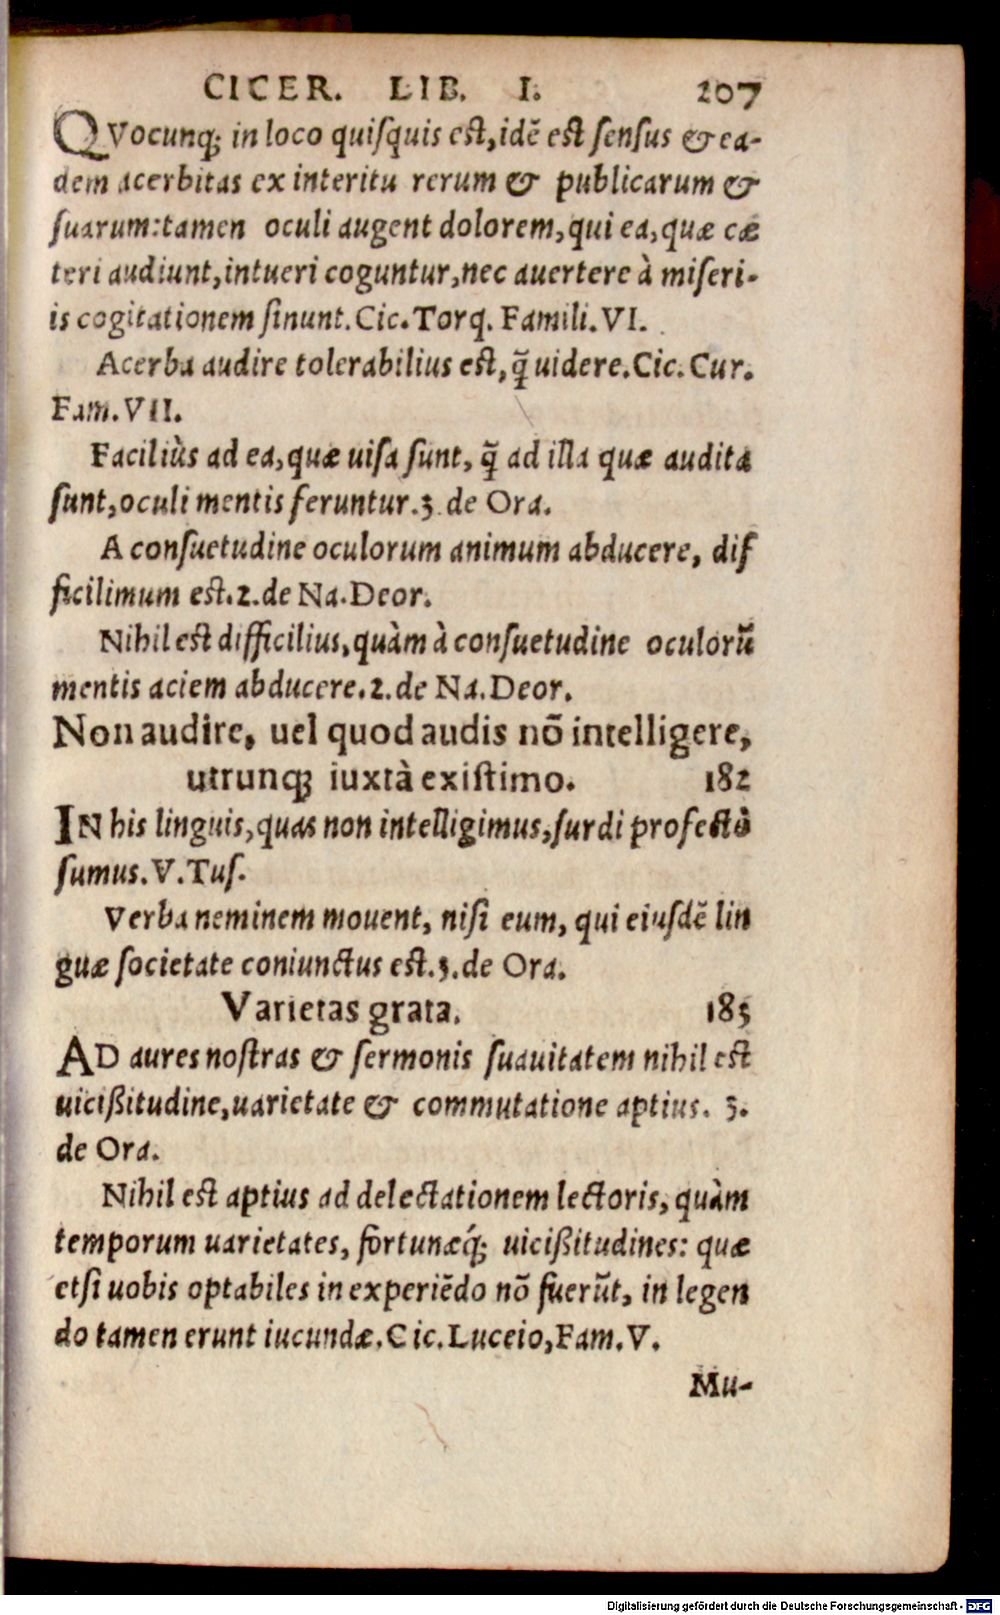 CICER. LIB. I. 207
QVocunq; in loco quiſquis eſt, idē eſt ſenſus & ea-
dem acerbitas ex interitu rerum & publicarum &
ſuarum: tamen oculi augent dolorem, qui ea, quæ cæ
teri audiunt, intueri coguntur, nec auertere à miſeri-
is cogitationem ſinunt. Cic. Torq. Famili. VI.
Acerba audire tolerabilius eſt, q̃ uidere. Cic. Cur.
Fam. VII.
Faciliùs ad ea, quæ uiſa ſunt, q̃ ad illa quæ audita
ſunt, oculi mentis feruntur. 3. de Ora.
A conſuetudine oculorum animum abducere, dif
ficilimum eſt. 2. de Na. Deor.
Nihil eſt difficilius, quàm à conſuetudine oculorũ
mentis aciem abducere. 2. de Na. Deor.
Non audire, uel quod audis nō intelligere,
utrunq; iuxtà exiſtimo. 182
IN his linguis, quas non intelligimus, ſurdi profectò
ſumus. V. Tuſ.
Verba neminem mouent, niſi eum, qui eiuſdē lin
guæ ſocietate coniunctus eſt. 3. de Ora.
Varietas grata. 183
AD aures noſtras & ſermonis ſuauitatem nihil eſt
uicißitudine, uarietate & commutatione aptius. 3.
de Ora.
Nihil eſt aptius ad delectationem lectoris, quàm
temporum uarietates, fortunæq́; uicißitudines: quæ
etſi uobis optabiles in experiēdo nō fuerūt, in legen
do tamen erunt iucundæ. Cic. Luceio, Fam. V.
Mu-
Digitalisierung gefördert durch die Deutsche Forschungsgemeinschaft - DFG